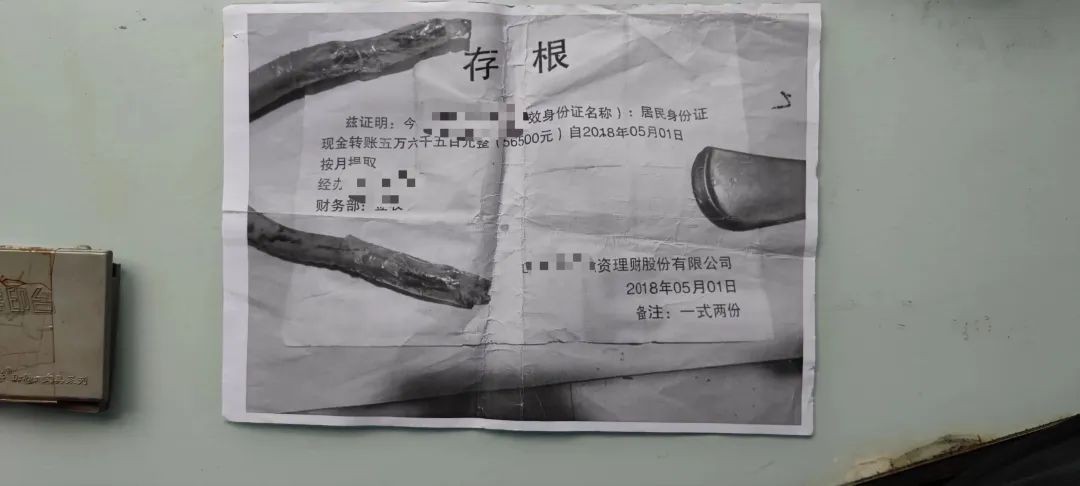 存根
兹证明：今 效身份证名称）：居民身份证
现金转账五万六千五百元整（56500元）自2018年05月01日
按月提取
经办
财务部：
资理财股份有限公司
2018年05月01日
备注：一式两份
印台
文具系列